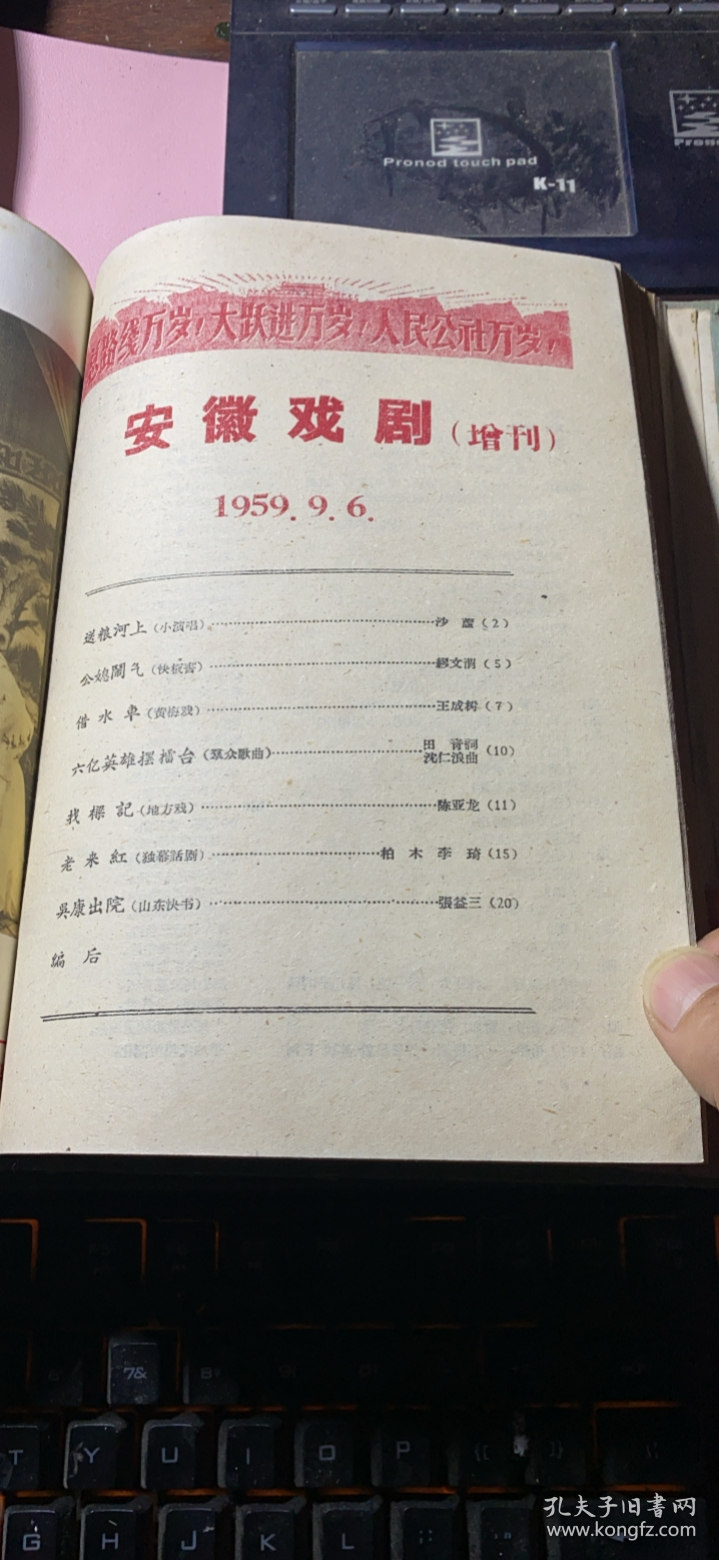 Pronod touch pad
K-11
总路线万岁！大跃进万岁！人民公社万岁！
安徽戏剧（增刊）
1959.9.6.
送粮河上（小演唱）……沙（2）
公媳鬧气（快板書）……文（5）
借水車（黄梅戏）……王成树（7）
六亿英雄摆擂台（羣众歌曲）……田青詞
沈仁浪曲（10）
找標記（地方戏）……陈亚龙（11）
老来紅（独幕話剧）……柏木 李琦（15）
吳康出院（山东快书）……張益三（20）
编后
7&
T Y U I O P
G H J K L
孔夫子旧書网
www.kongfz.com